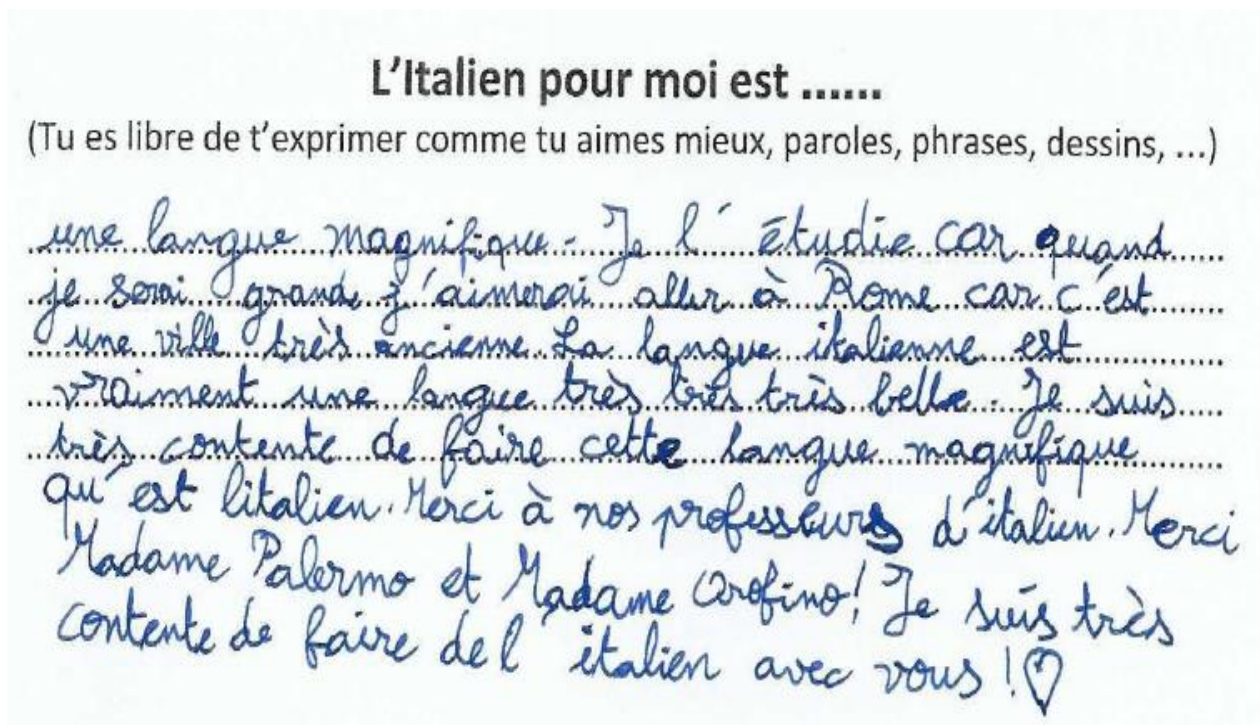 L'Italien pour moi est ......
(Tu es libre de t'exprimer comme tu aimes mieux, paroles, phrases, dessins, ...)
une langue magnifique. Je l'étudie car quand
je serai grande j'aimerai aller à Rome car c'est
une ville très ancienne. La langue italienne est
vraiment une langue très très très belle. Je suis
très contente de faire cette langue magnifique
qu'est litalien. Merci à nos professeurs d'italien. Merci
Madame Palermo et Madame Orofino! Je suis très
contente de faire de l'italien avec vous !♡